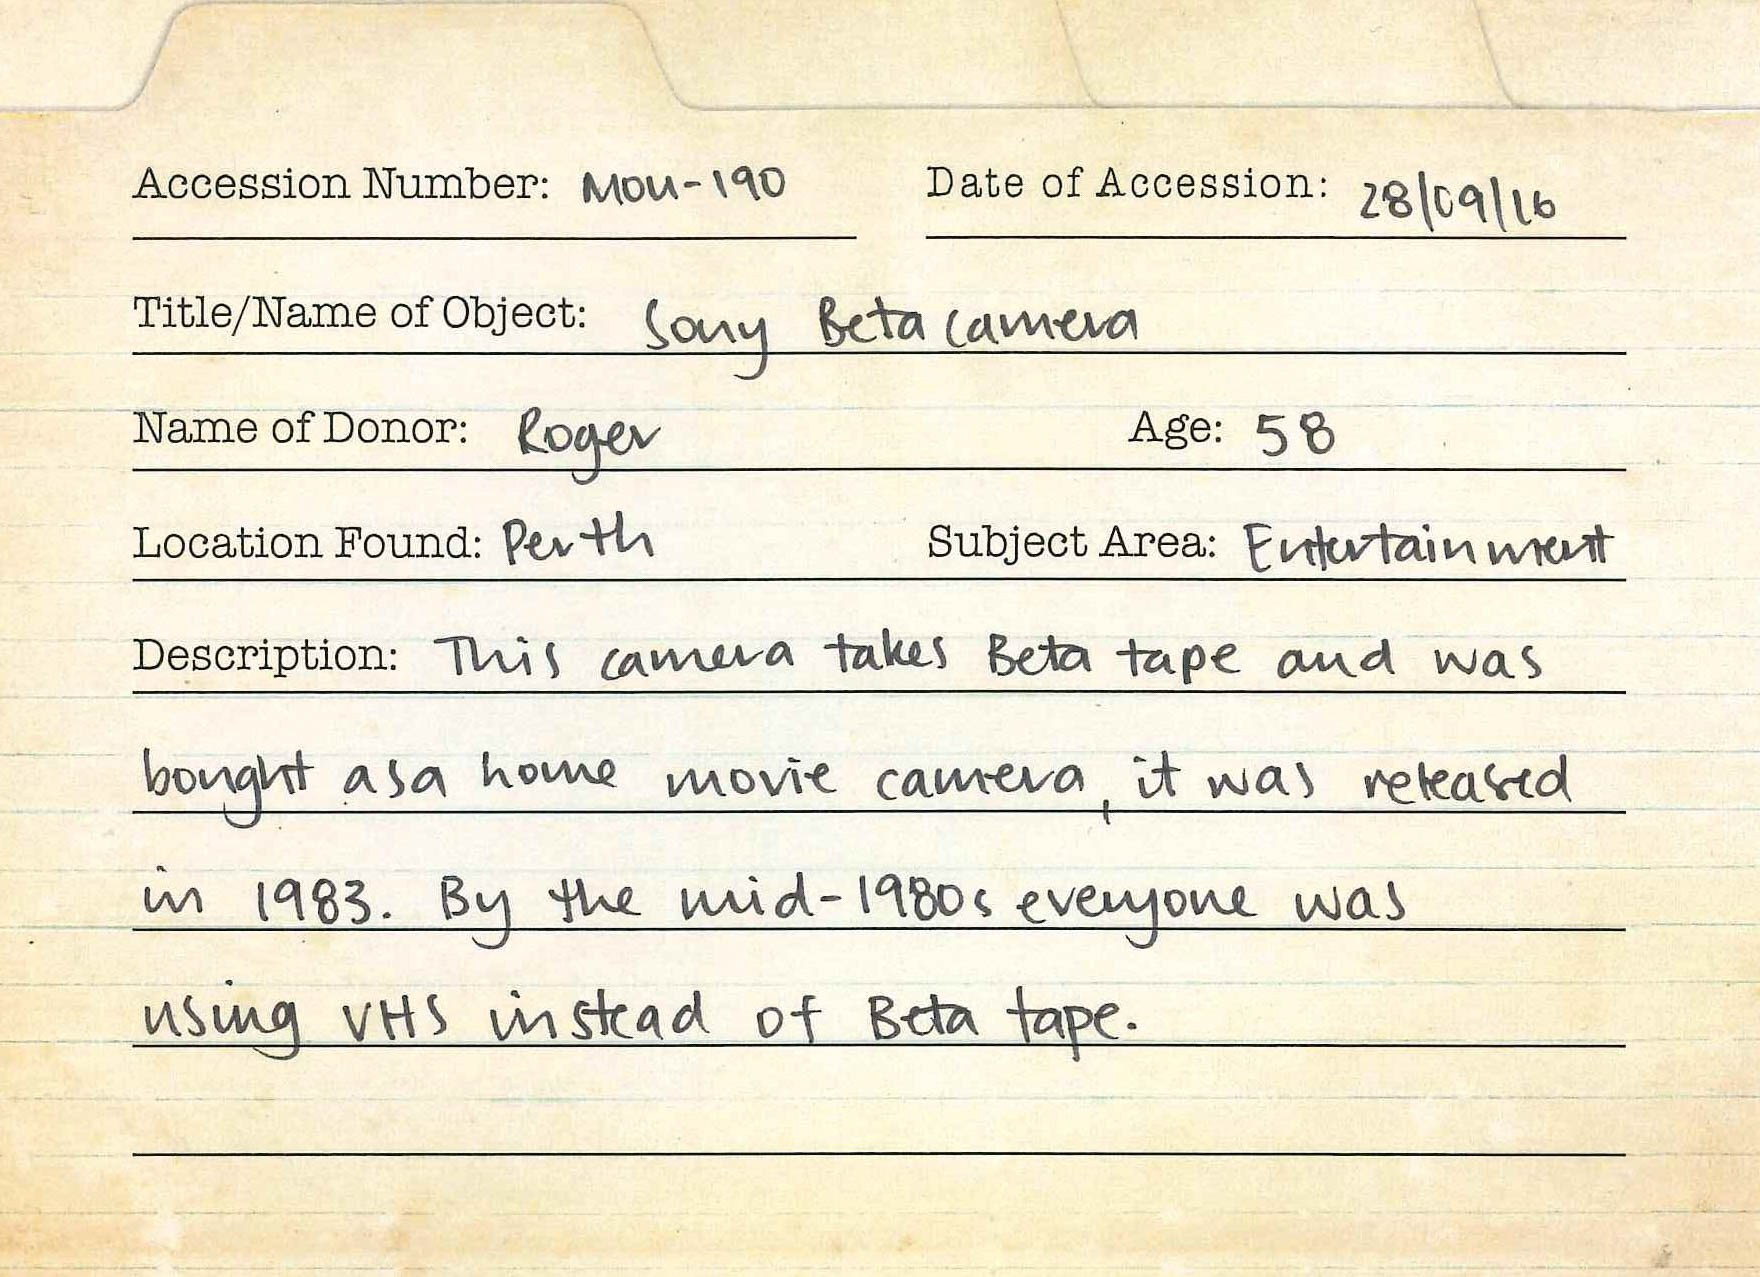 Accession Number: MOU-190 Date of Accession: 28/09/16
Title/Name of Object: Sony Beta camera
Name of Donor: Roger Age: 58
Location Found: Perth Subject Area: Entertainment
Description: This camera takes Beta tape and was
bought as a home movie camera, it was released
in 1983. By the mid-1980s everyone was
using VHS instead of Beta tape.